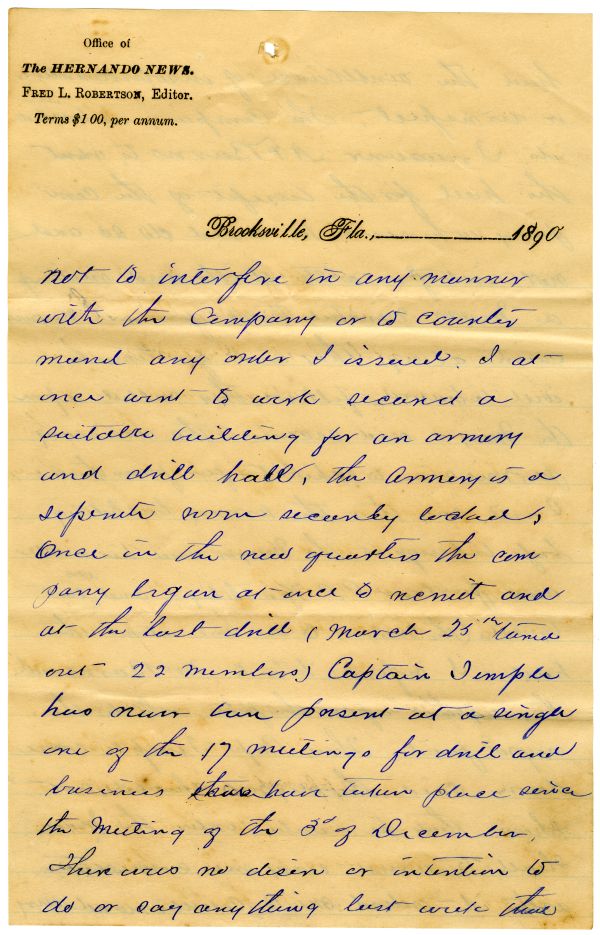 Office of
The HERNANDO NEWS.
FRED L. ROBERTSON, Editor.
Terms $1 00, per annum.
Brooksville, Fla., 1890
not to interfire in any manner
with the Company or to counter
mand any order I issued. I at
once went to work secured a
suitable building for an armery
and drill hall, the Armery is a
seperate room securely locked,
Once in the new quarters the com
pany began at once to recruit and
at the last drill (March 25th turned
out 22 members) Captain Temple
has never been present at a single
one of the 17 meetings for drill and
business have taken place since
the Meeting of the 3d of December.
There was no desire or intention to
do or say anything last week that